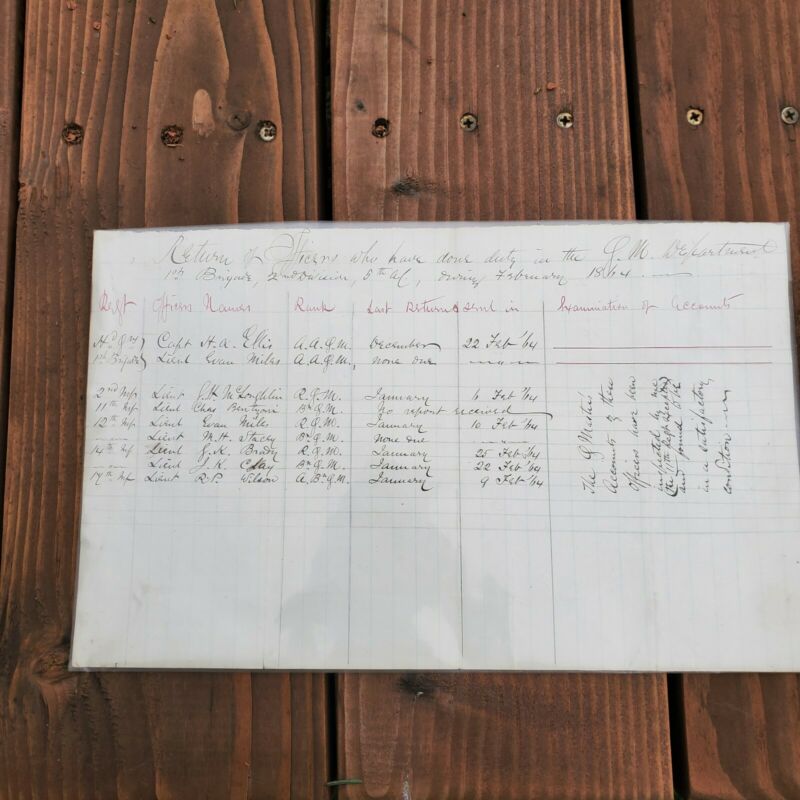 Return of Officers who have done duty in the Q. M. Department
1st Brigade, 2nd Division, 5th AC, during February 1864.
Regt Officers Names Rank Last Returns sent in Examination of Accounts
Hd Qrs Capt H. A. Ellis A.A.Q.M. December 22 Feb '64
1st Brigade Lieut Evan Miles A.A.Q.M., none due
2nd Inf Lieut McLoughlin R.Q.M. January 6 Feb '64
11th Inf Lieut Chas Bentzoni Bn Q.M. No report received
12th Inf Lieut Evan Miles R.Q.M. January 10 Feb '64
Lieut M. H. Stacey Bn Q.M. None due
14th Inf Lieut Brady R.Q.M. January 25 Feb '64
Lieut J. K. Clay Bn Q.M. January 22 Feb '64
17th Inf Lieut R. P. Wilson A. Bn Q.M. January 9 Feb '64
The Q Masters
Accounts of these
Officers have been
inspected by me
(the 11th Regt excepted)
and found to be
in a satisfactory
condition